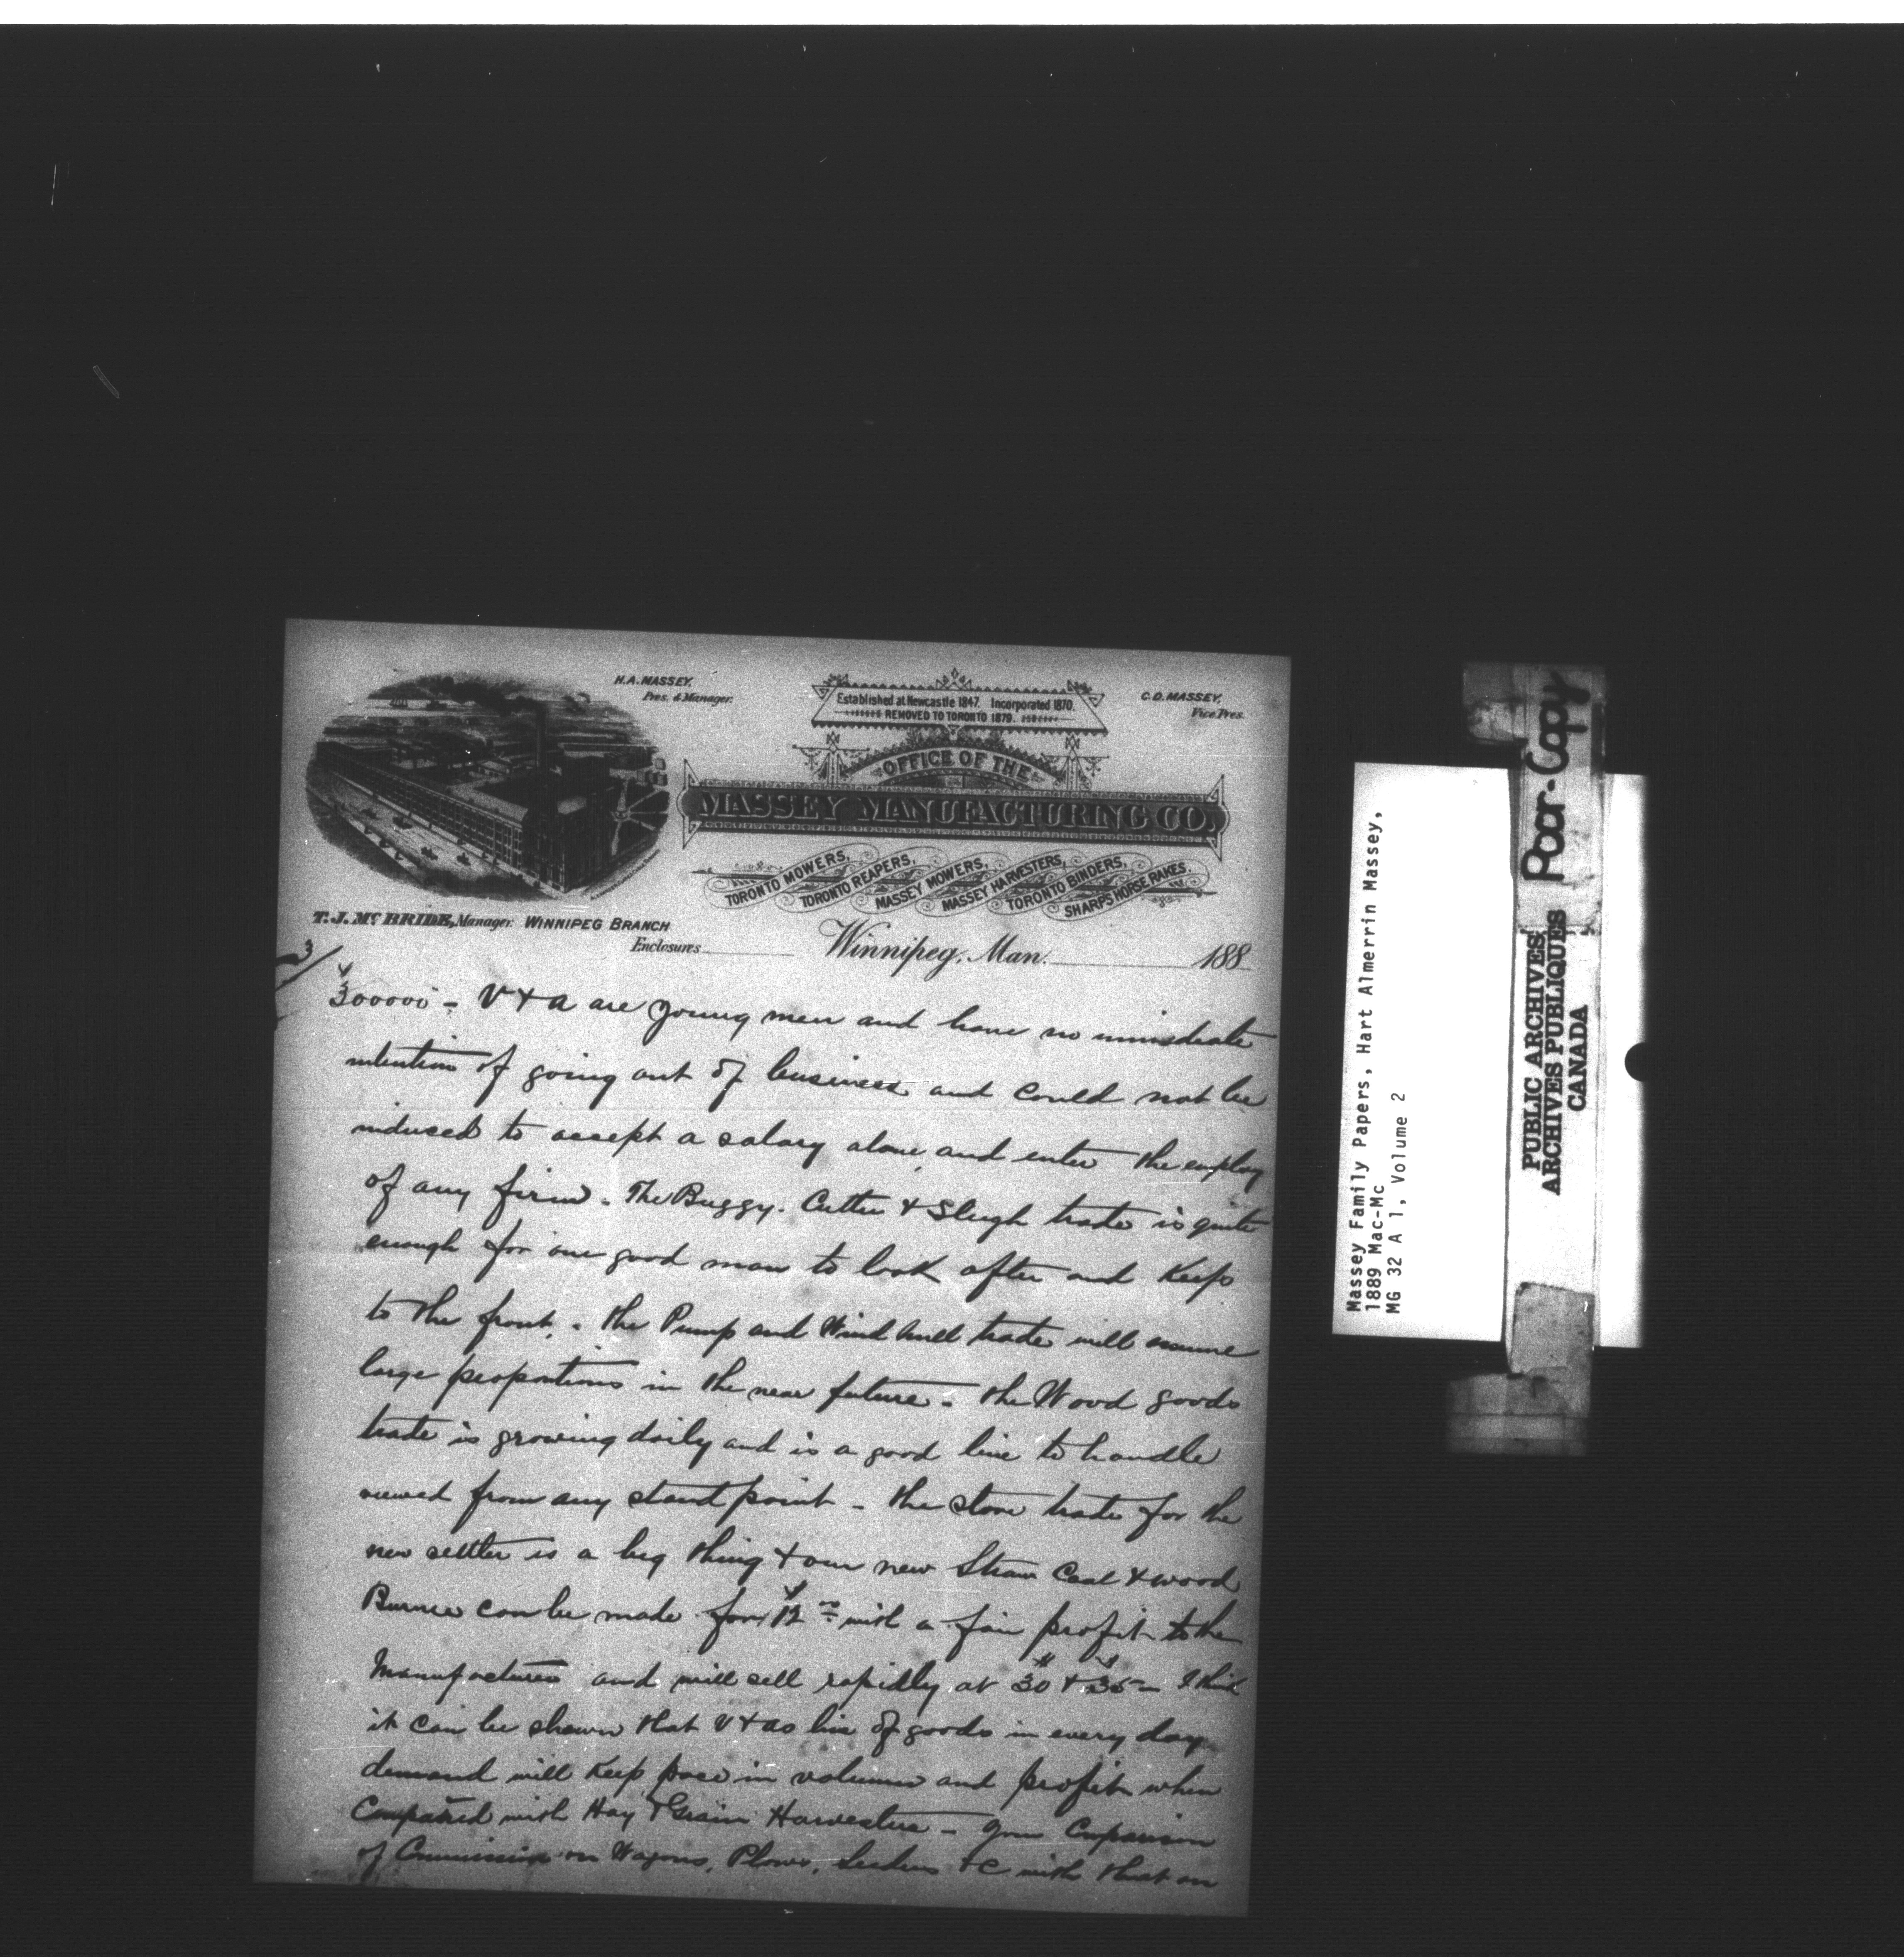 H.A. MASSEY,
Pres. & Manager.
Established at Newcastle 1847. Incorporated 1870.
REMOVED TO TORONTO 1879.
C.D. MASSEY,
Vice Pres.
OFFICE OF THE
MASSEY MANUFACTURING CO.
TORONTO MOWERS,
TORONTO REAPERS,
MASSEY MOWERS,
MASSEY HARVESTERS,
TORONTO BINDERS,
SHARP'S HORSE RAKES.
T.J. McBRIDE, Manager. WINNIPEG BRANCH
Enclosures
Winnipeg, Man. 188
3/
$300000 - V & A are young men and have no immediate
intention of going out of business and could not be
induced to accept a salary alone and enter the employ
of any firm - The Buggy. Cutter & Sleigh trade is quite
enough for one good man to look after and keep
to the front. - The Pump and Wind Mill trade will assume
large proportions in the near future - The Wood goods
trade is growing daily and is a good line to handle
viewed from any stand point - The stove trade for the
new settler is a big thing & our new Straw Coal & wood
Burner can be made for $12 00 with a fair profit to the
Manufacturer and will sell rapidly at $30 & $35 - I think
it can be shown that V & As line of goods in every day
demand will keep pace in volume and profit when
Compared with Hay & Grain Harvesters - your Comparison
of Commission on Wagons, Plows, Seeders &c with that on
Massey Family Papers, Hart Almerrin Massey,
1889 Mac-Mc
MG 32 A 1, Volume 2
PUBLIC ARCHIVES
ARCHIVES PUBLIQUES
CANADA
Poor-Copy